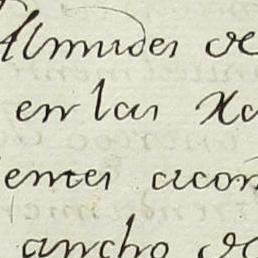 Almudes de
en las
entes acon
ancho de